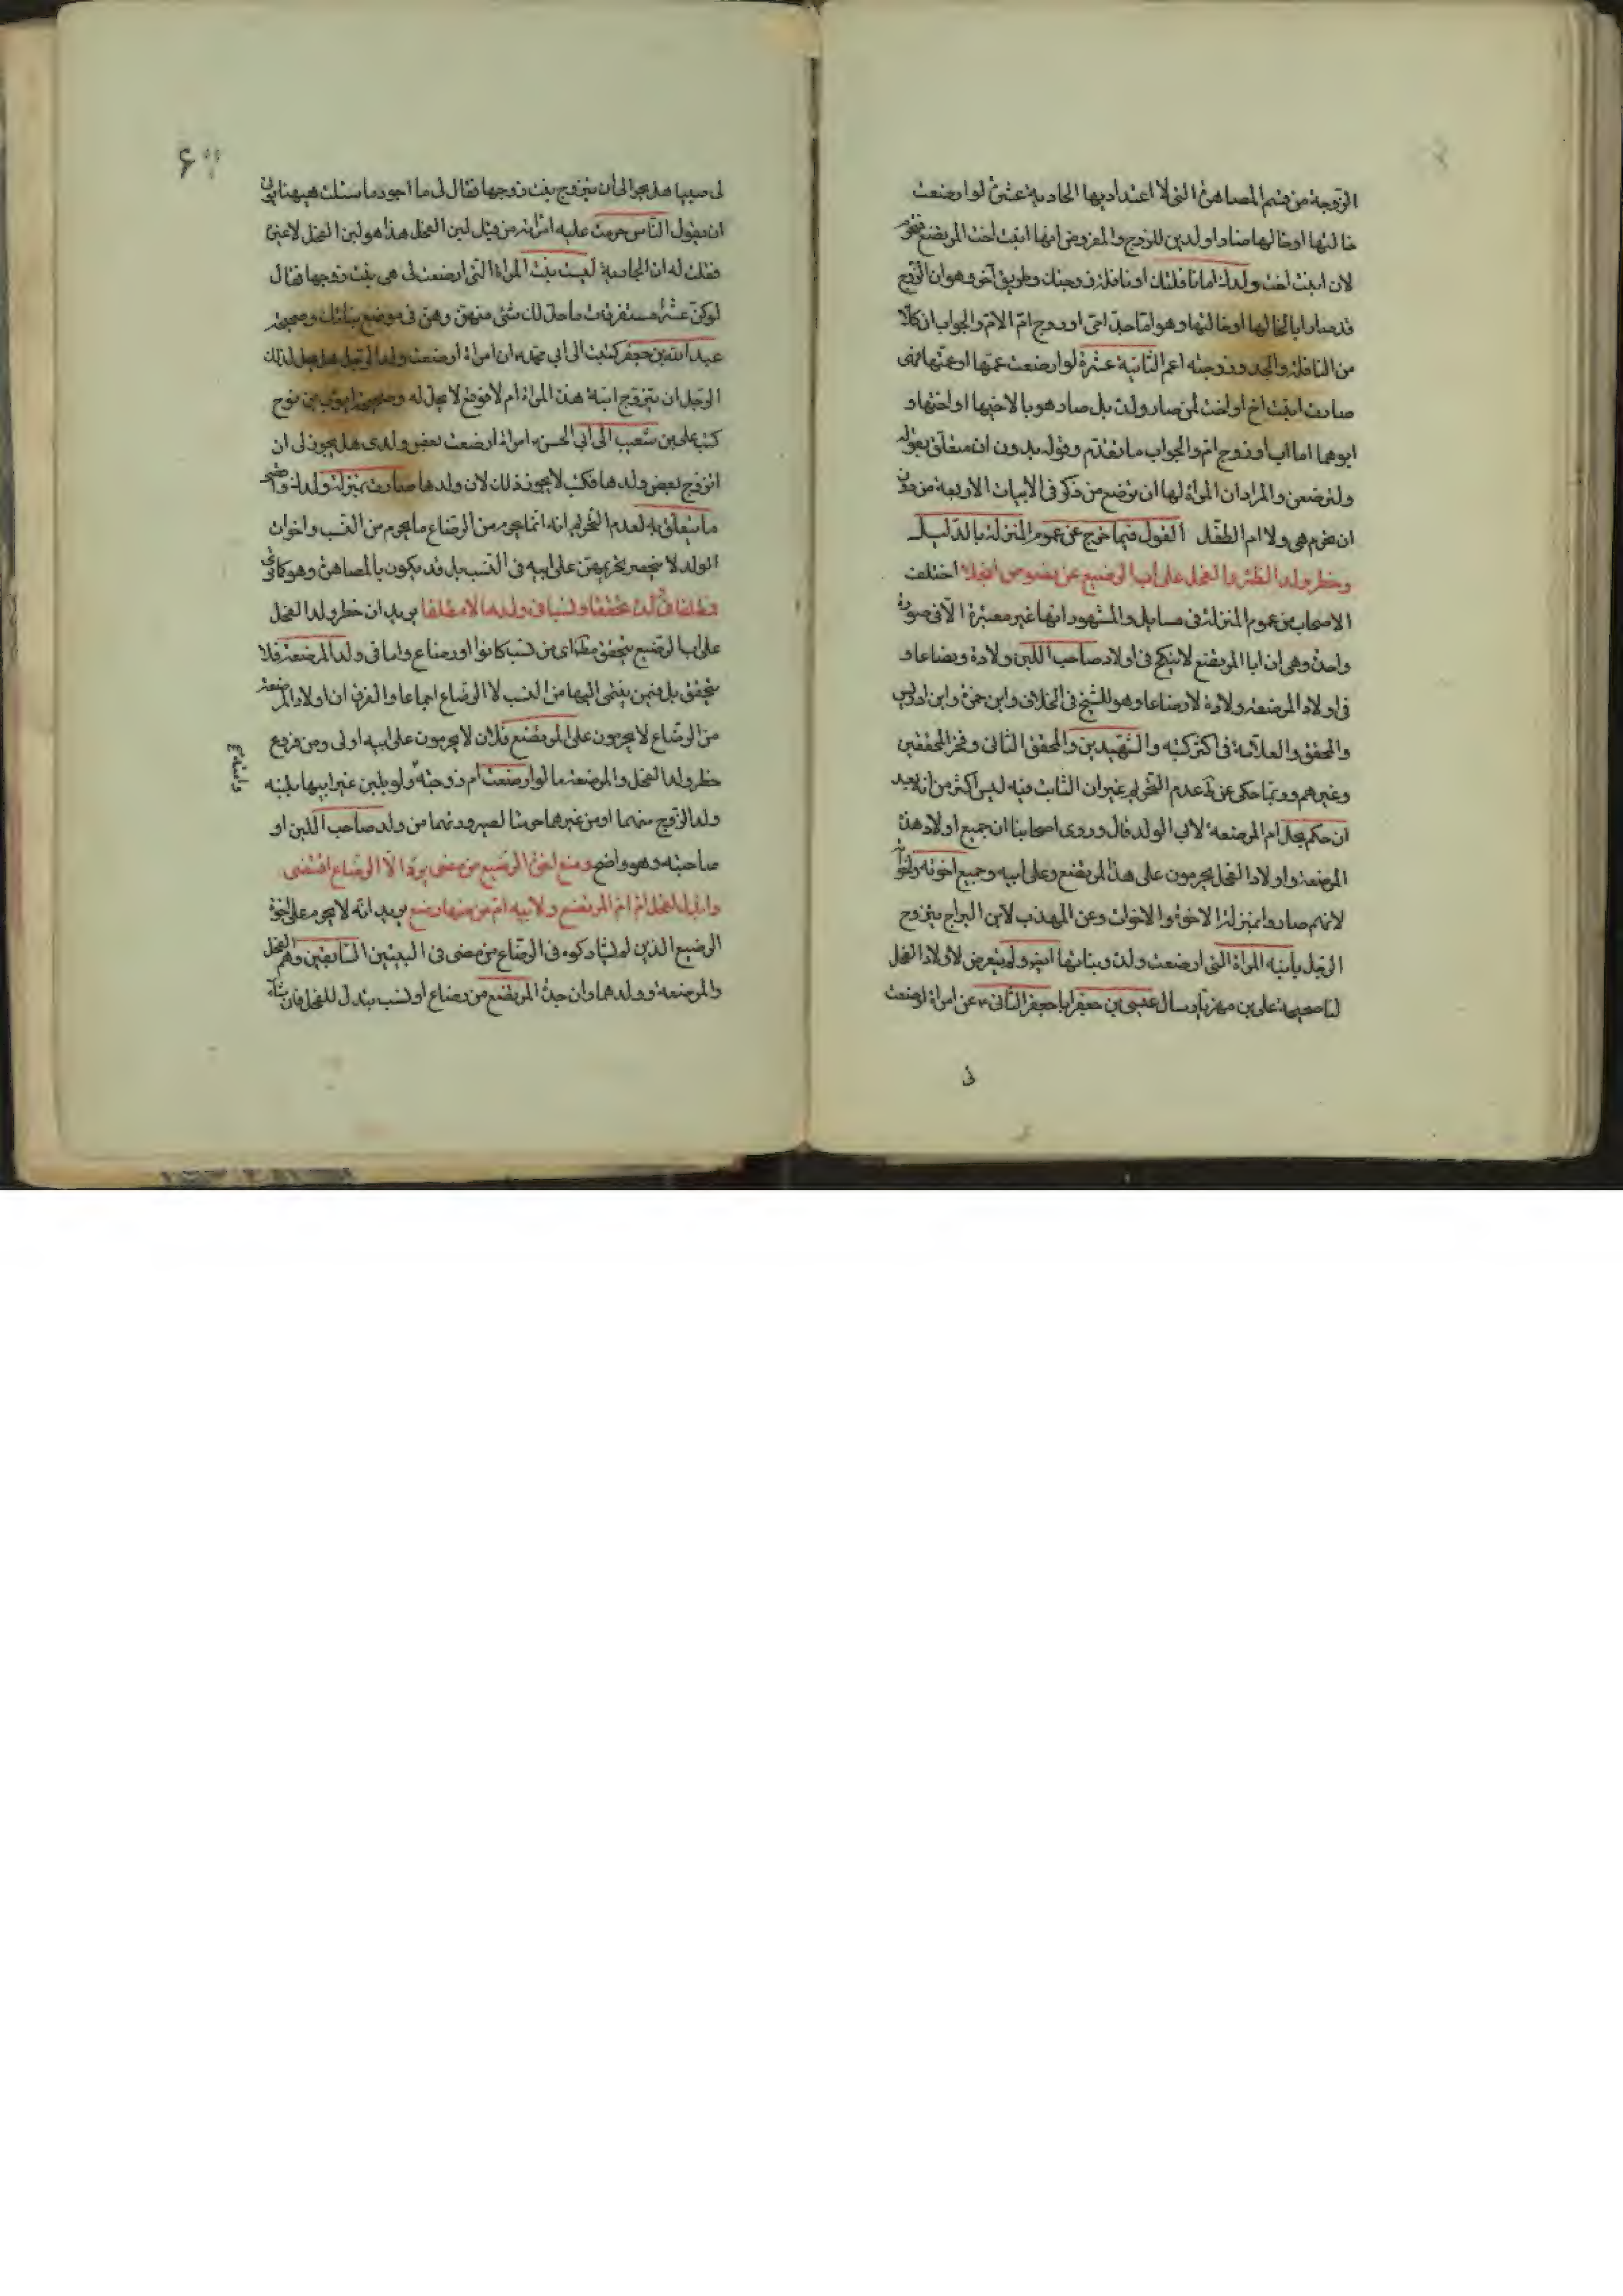 الزوجة من قسم المصاهرة التي لا اعتداد بها الحادية عشرة لو ارضعت
خالتها او خالها صارا ولدين للزوج والمفروض انها ابنت اخت المرتضع فتحرم
لان ابنت اخت ولدك اما نافلتك او نافلة زوجتك وطريق آخر وهو ان الزوج
قد صار ابا لخالها او خالتها وهو اما جد امي او زوج ام الام والجواب ان كلا
من النافلة والجد وزوجته اعم الثانية عشرة لو ارضعت عمها او عمتها فهي
صارت ابنت اخ او اخت لمن صار ولدك بل صار هو ابا لاخيها او اختها و
ابوهما اما اب او زوج ام والجواب ما تقدم وقوله بدون ان متعلق بقوله
ولترضعن والمراد ان المراة لها ان ترضع من ذكر في الابيات الاربعة من دون
ان تحرم هي ولا ام الطفل القول فيما خرج عن عموم المنزلة بالدليل
وحظر ولد الظئر والفحل على اب الرضيع عن نصوص انجلا اختلف
الاصحاب في عموم المنزلة في مسايل والمشهور انها غير معتبرة الا في صورة
واحدة وهي ان ابا المرتضع لا ينكح في اولاد صاحب اللبن ولادة ورضاعا و
في اولاد المرضعة ولادة لا رضاعا وهو للشيخ في الخلاف وابن حمزة وابن ادريس
والمحقق والعلامة في اكثر كتبه والشهيدين والمحقق الثاني وفخر المحققين
وغيرهم وربما حكى عن ط عدم التحريم غير ان الثابت فيه ليس اكثر من انه بعد
ان حكم بحل ام المرضعة لابي الولد قال وروى اصحابنا ان جميع اولاد هذه
المرضعة واولاد الفحل يحرمون على هذا المرتضع وعلى ابيه وجميع اخوته واخواته
لانهم صاروا بمنزلة الاخوة والاخوات وعن المهذب لابن البراج يتزوج
الرجل بابنه المراة التي ارضعت ولده وبناتها ايضا ولم يتعرض لاولاد الفحل
لنا صحيحة علي بن مهزيار سال عيسى بن جعفر ابا جعفر الثاني ع عن امراة ارضعت
لي
لي صبيا هل يجوز لي ان يتزوج بنت زوجها فقال لي ما اجود ما سئلت هيهنا يؤتى
ان يقول الناس حرمت عليه امراته من قبل لبن الفحل هذا هو لبن الفحل لا غيره
فقلت له ان الجارية ليست بنت المراة التي ارضعت لي هي بنت زوجها فقال
لو كن عشرا متفرقات ما حل لك شئ منهن وهن في موضع بناتك وصحيحة
عبد الله بن جعفر كتبت الى ابي محمد ع ان امراة ارضعت ولد الرجل هل يحل لذلك
الرجل ان يتزوج ابنة هذه المراة ام لا فوقع لا يحل له وصحيحة ايوب بن نوح
كتب علي بن شعيب الى ابي الحسن ع امراة ارضعت بعض ولدي هل يجوز لي ان
اتزوج بعض ولدها فكتب لا يجوز ذلك لان ولدها صارت بمنزلة ولدك واوضح
ما يتعلق به لعدم التحريم انه انما يحرم من الرضاع ما يحرم من النسب واخوات
الولد لا ينحصر تحريمهن على ابيه في النسب بل قد يكون بالمصاهرة وهو كما ترى
تحققا ونسبا في ولدها لا مطلقا يريد ان حظر ولد الفحل
على اب الرضيع يتحقق مطلقا اي من نسب كانوا او رضاع واما في ولد المرضعة فلا
يتحقق بل فيمن ينتمي اليها من النسب لا الرضاع اجماعا والفرق ان اولاد المرضعة
من الرضاع لا يحرمون على المرتضع فلان لا يحرمون على ابيه اولى ومن فروع
حظر ولد الفحل والمرضعة ما لو ارضعت ام زوجته ولو بلبن غير ابيها بلبنه
ولد الزوج منهما او من غيرهما حرمتا لصيرورتهما من ولد صاحب اللبن او
صاحبته وهو واضح ومنع اخوة الرضيع من مضى يرد الا الرضاع اقتضى
ام المرتضع ولابيه ام من منها رضع يريد انه لا يحرم على اخوة
الرضيع الذين لم يشاركوه في الرضاع من مضى في البيتين السابقين وهم الفحل
والمرضعة وولدهما وان جدة المرتضع من رضاع او نسب تبذل للفحل فان شاء